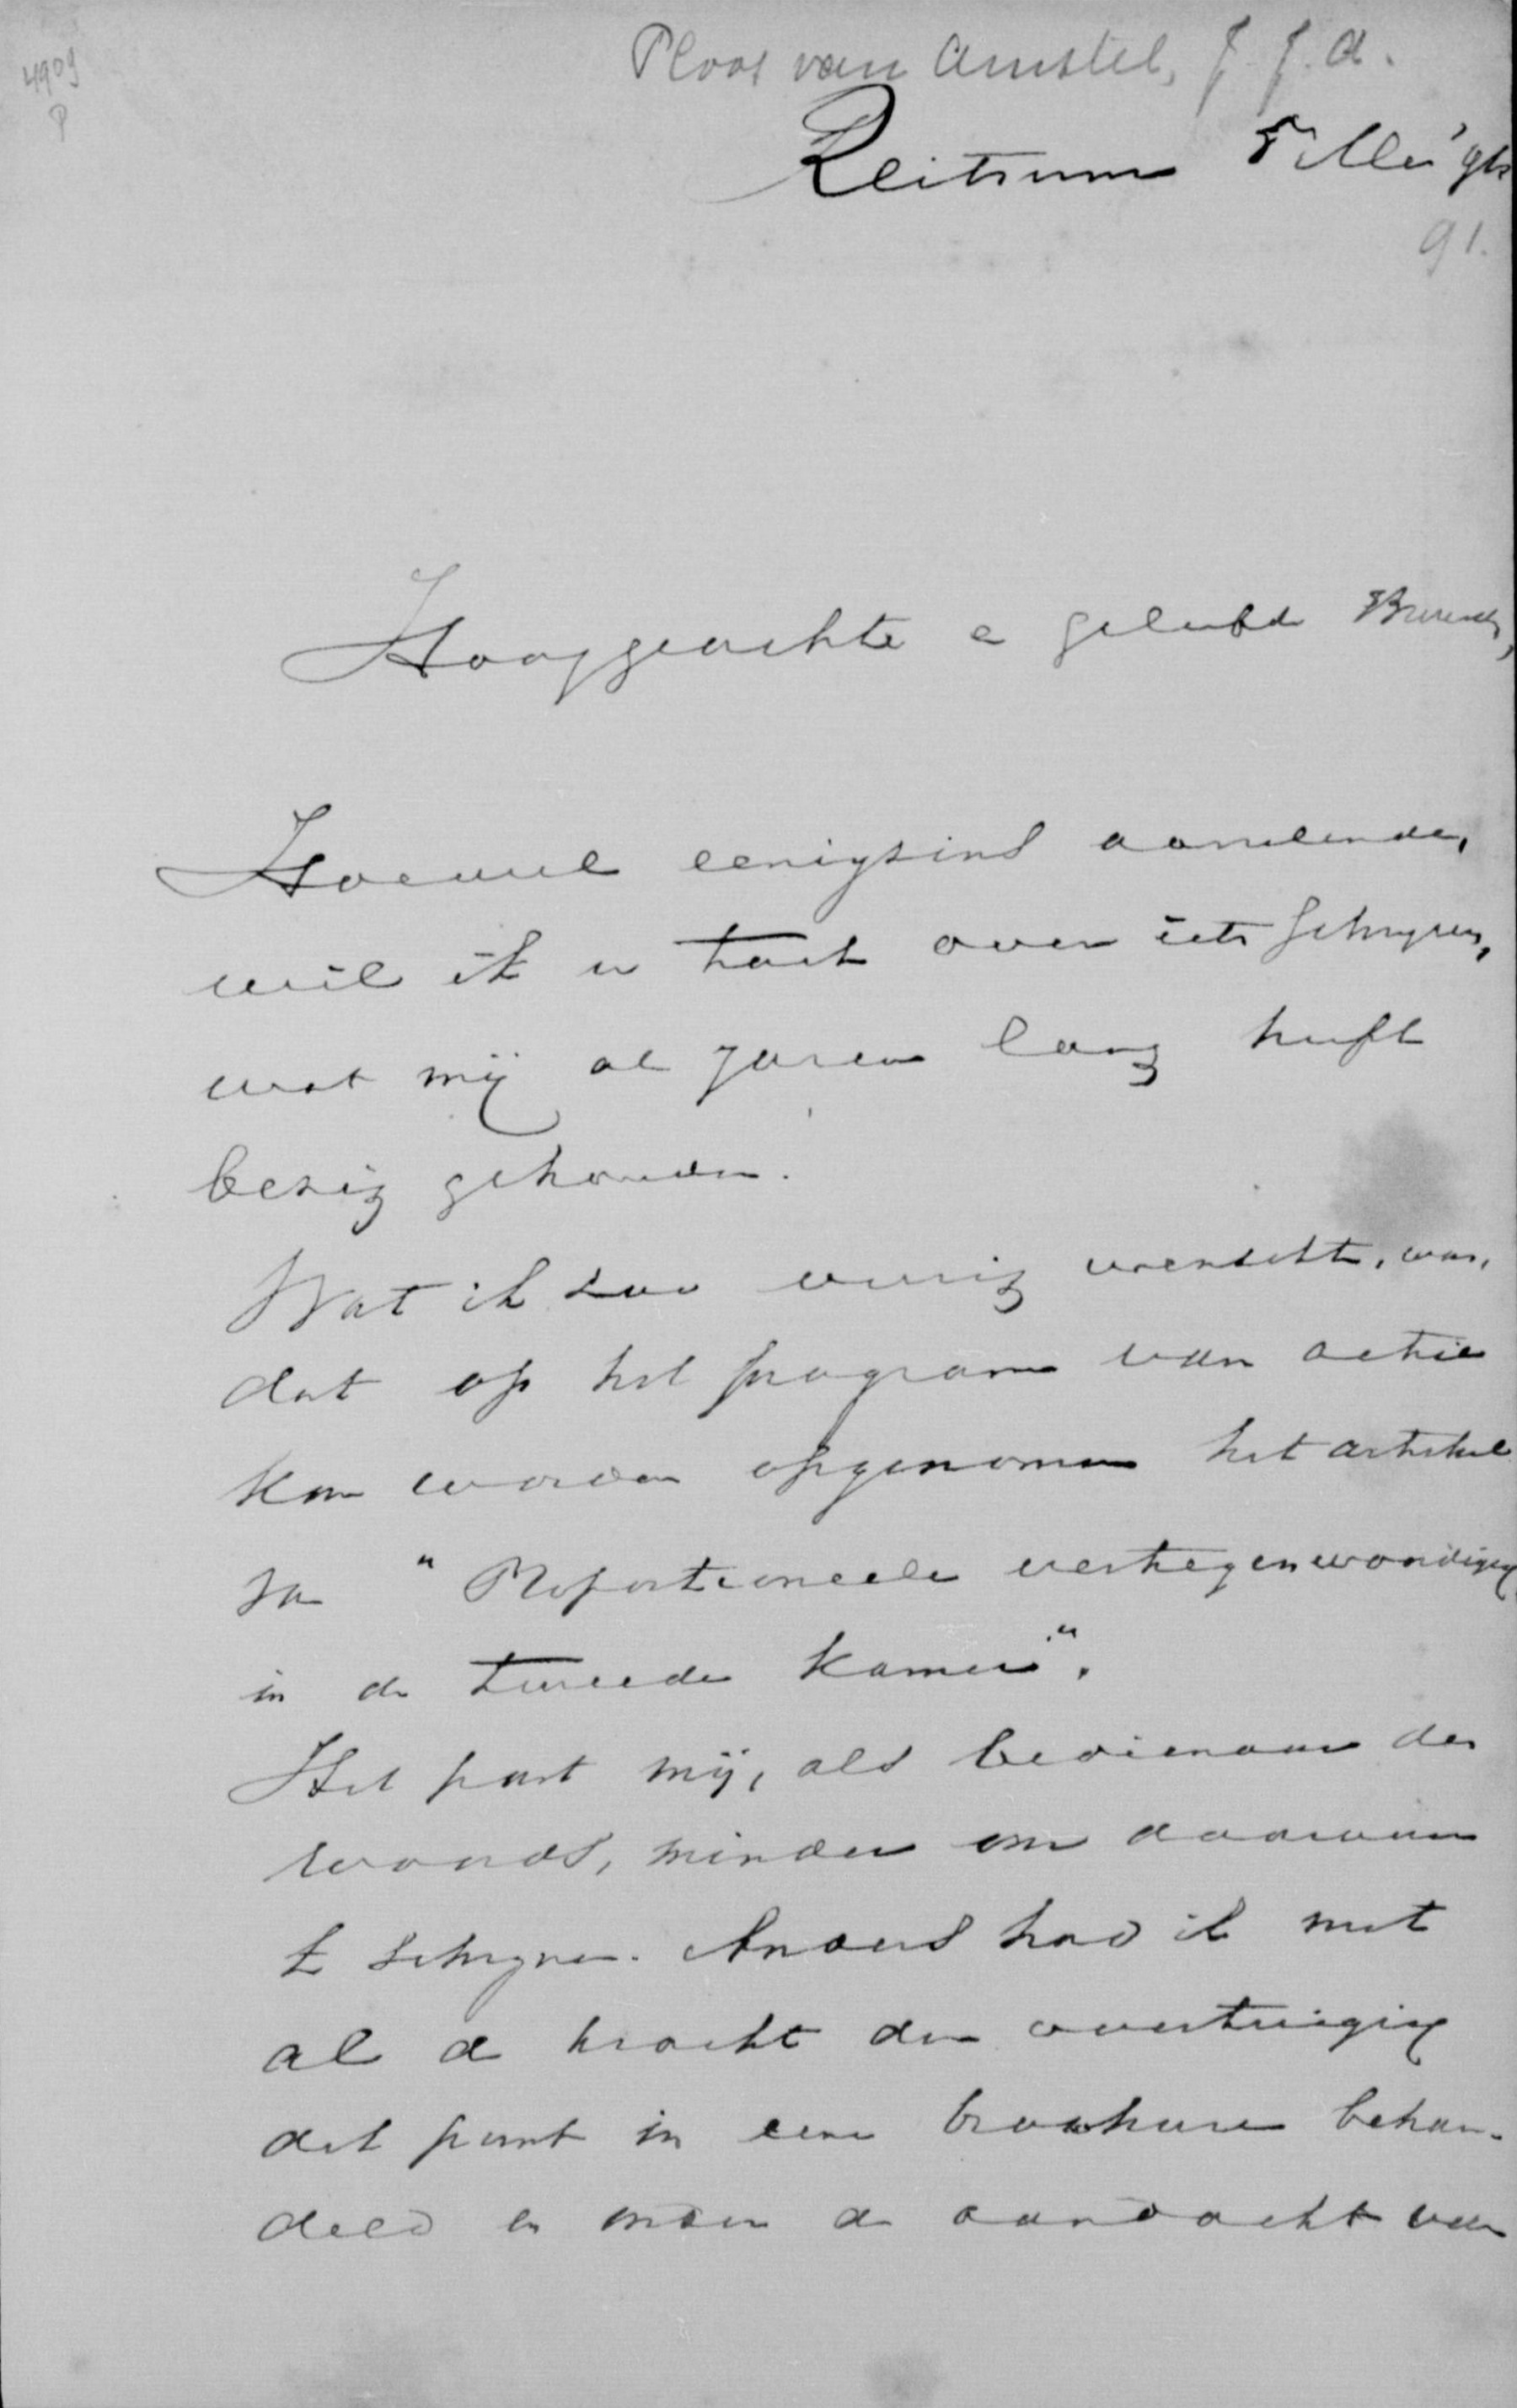 4909
P
Ploos van Amstel, J. J. A.
Reitsum 5 Mei '91
91.
Hooggeachte e geliefde Broeder,
Hoewel eenigzins aarzelende,
wil ik u toch over iets schrijven,
wat mij al jaren lang heeft
bezig gehouden.
Wat ik zoo vurig wenschte, was,
dat op het program van actie
kon worden opgenomen het artikel
van "Proportioneele vertegenwoordiging
in de tweede kamer".
Het past mij, als bedienaar des
woords, minder om daarover
te schrijven. Anders had ik met
al de kracht der overtuiging
dat punt in eene brochure behan-
deld en onder de aandacht van